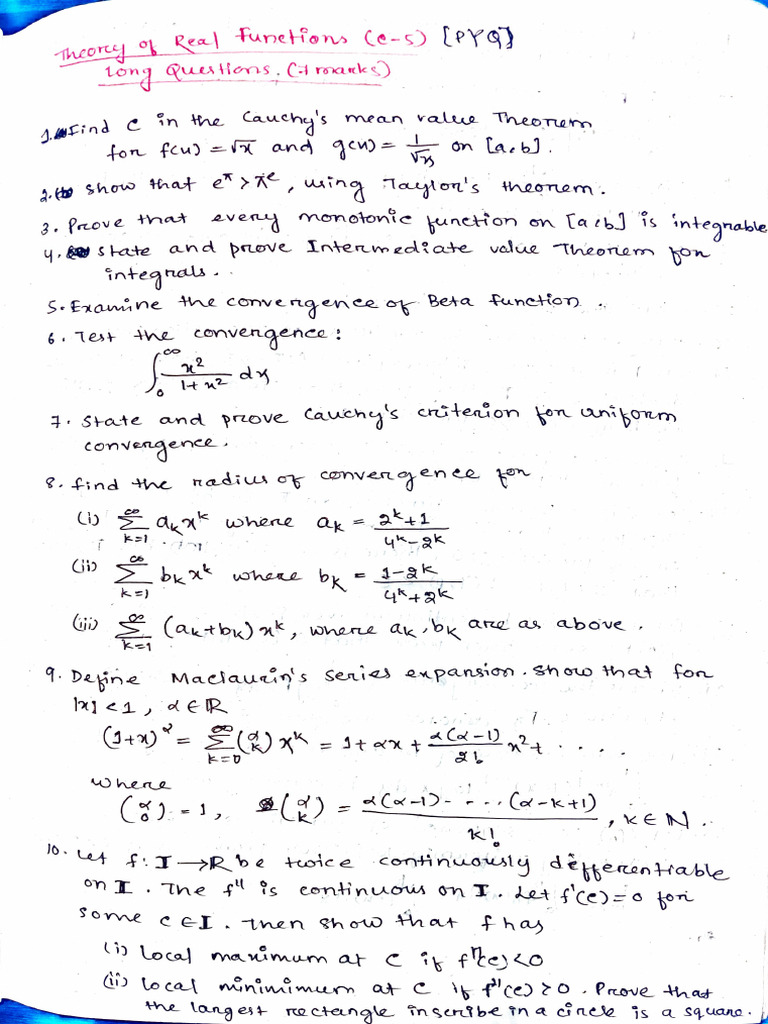 Theory of Real Functions (C-5) [PYQ]
Long Questions. (7 marks)
1. Find C in the Cauchy's mean value Theorem
for f(x) = √x and g(x) = 1/√x on [a,b].
2. Show that e^π > π^e, using Taylor's theorem.
3. Prove that every monotonic function on [a,b] is integrable
4. State and prove Intermediate value Theorem for
integrals.
5. Examine the convergence of Beta function.
6. Test the convergence:
∫₀^∞ x²/(1+x²) dx
7. State and prove Cauchy's criterion for uniform
convergence.
8. find the radius of convergence for
(i) ∑_{k=1}^∞ a_k x^k where a_k = (2^k+1)/(4^k-2^k)
(ii) ∑_{k=1}^∞ b_k x^k where b_k = (1-2^k)/(4^k+2^k)
(iii) ∑_{k=1}^∞ (a_k+b_k) x^k, where a_k, b_k are as above.
9. Define Maclaurin's series expansion. Show that for
|x| < 1, α ∈ ℝ
(1+x)^α = ∑_{k=0}^∞ (α k) x^k = 1 + αx + α(α-1)/2! x² + . . . .
where
(α 0) = 1, (α k) = α(α-1) - ... (α-k+1)/k!, k ∈ ℕ.
10. Let f: I → ℝ be twice continuously defferentiable
on I. The f'' is continuous on I. Let f'(c) = 0 for
some c ∈ I. Then show that f has
(i) local maximum at c if f''(c) < 0
(ii) local minimimum at c if f''(c) ≥ 0. Prove that
the largest rectangle inscribe in a circle is a square.